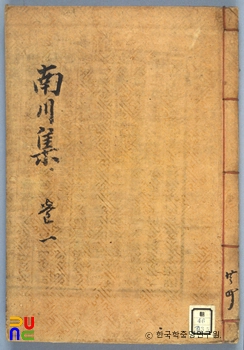 南川集
卷一
共四
© 한국학중앙연구원